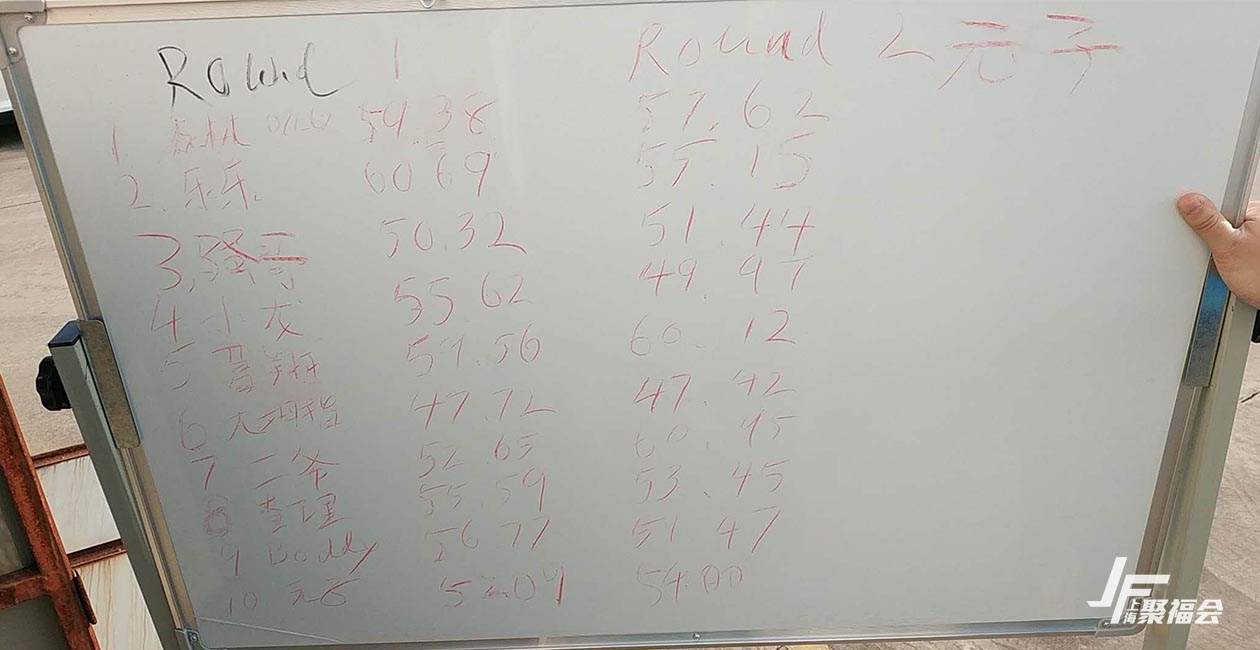 Round 1 Round 2 元子
1. 森林 59.38 57.62
2. 乐乐 60 69 55.15
3. 强哥 50.32 51.44
4 小龙 55 62 49.97
5 晋翔 59.56 60.12
6 大拇指 47.72 47.42
7 二爷 52 65 60.95
8 查理 55 59 53.45
9 Boddy 56 77 51 47
10 元子 52.09 54.00
JF 上海聚福会